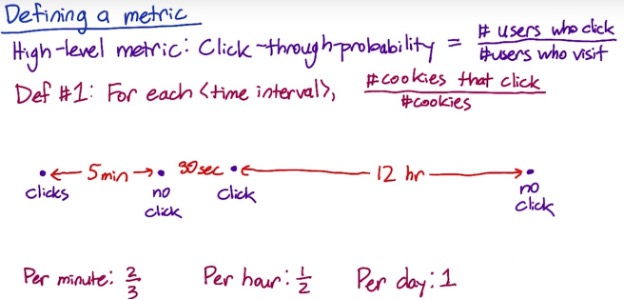 Defining a metric
High-level metric: Click-through-probability = # users who click / # users who visit
Def #1: For each <time interval>, # cookies that click / # cookies
5 min 30 sec 12 hr
clicks no click click no click
Per minute: 2/3 Per hour: 1/2 Per day: 1